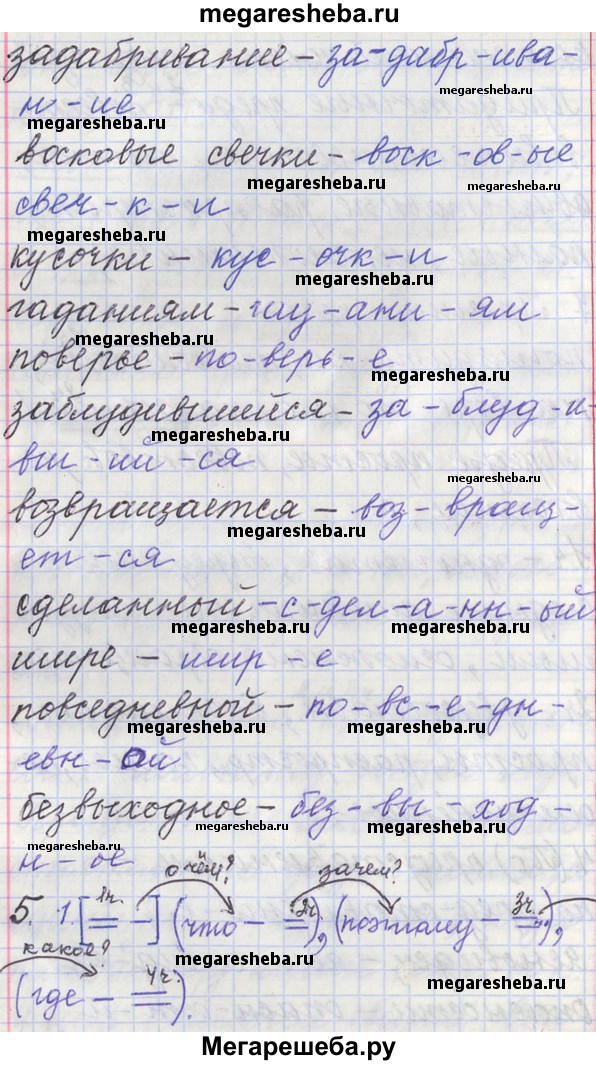 megaresheba.ru
задабривание – за-дабр-ива-
н-ие
megaresheba.ru
megaresheba.ru
восковые свечки – воск-ов-ые
megaresheba.ru
megaresheba.ru
свеч-к-и
megaresheba.ru
кусочки – кус-очк-и
megaresheba.ru
гаданиям – -ани-ям
megaresheba.ru
поверье – по-верь-е
megaresheba.ru
заблудившейся – за-блуд-и-
megaresheba.ru
вш-ий-ся
megaresheba.ru
возвращается – воз-вращ-
megaresheba.ru
ет-ся
сделанный – с-дел-а-нн-ый
megaresheba.ru
megaresheba.ru
шире – шир-е
повседневной – по-вс-е-дн-
megaresheba.ru
megaresheba.ru
евн-ой
безвыходное – без-вы-ход-
megaresheba.ru
megaresheba.ru
н-ое
о чём? зачем?
5. 1. [1ч. = –] (что – = 2ч.), (поэтому – = 3ч.),
какое?
megaresheba.ru
megaresheba.ru
(где – = 4ч.).
megaresheba.ru
Мегарешеба.ру